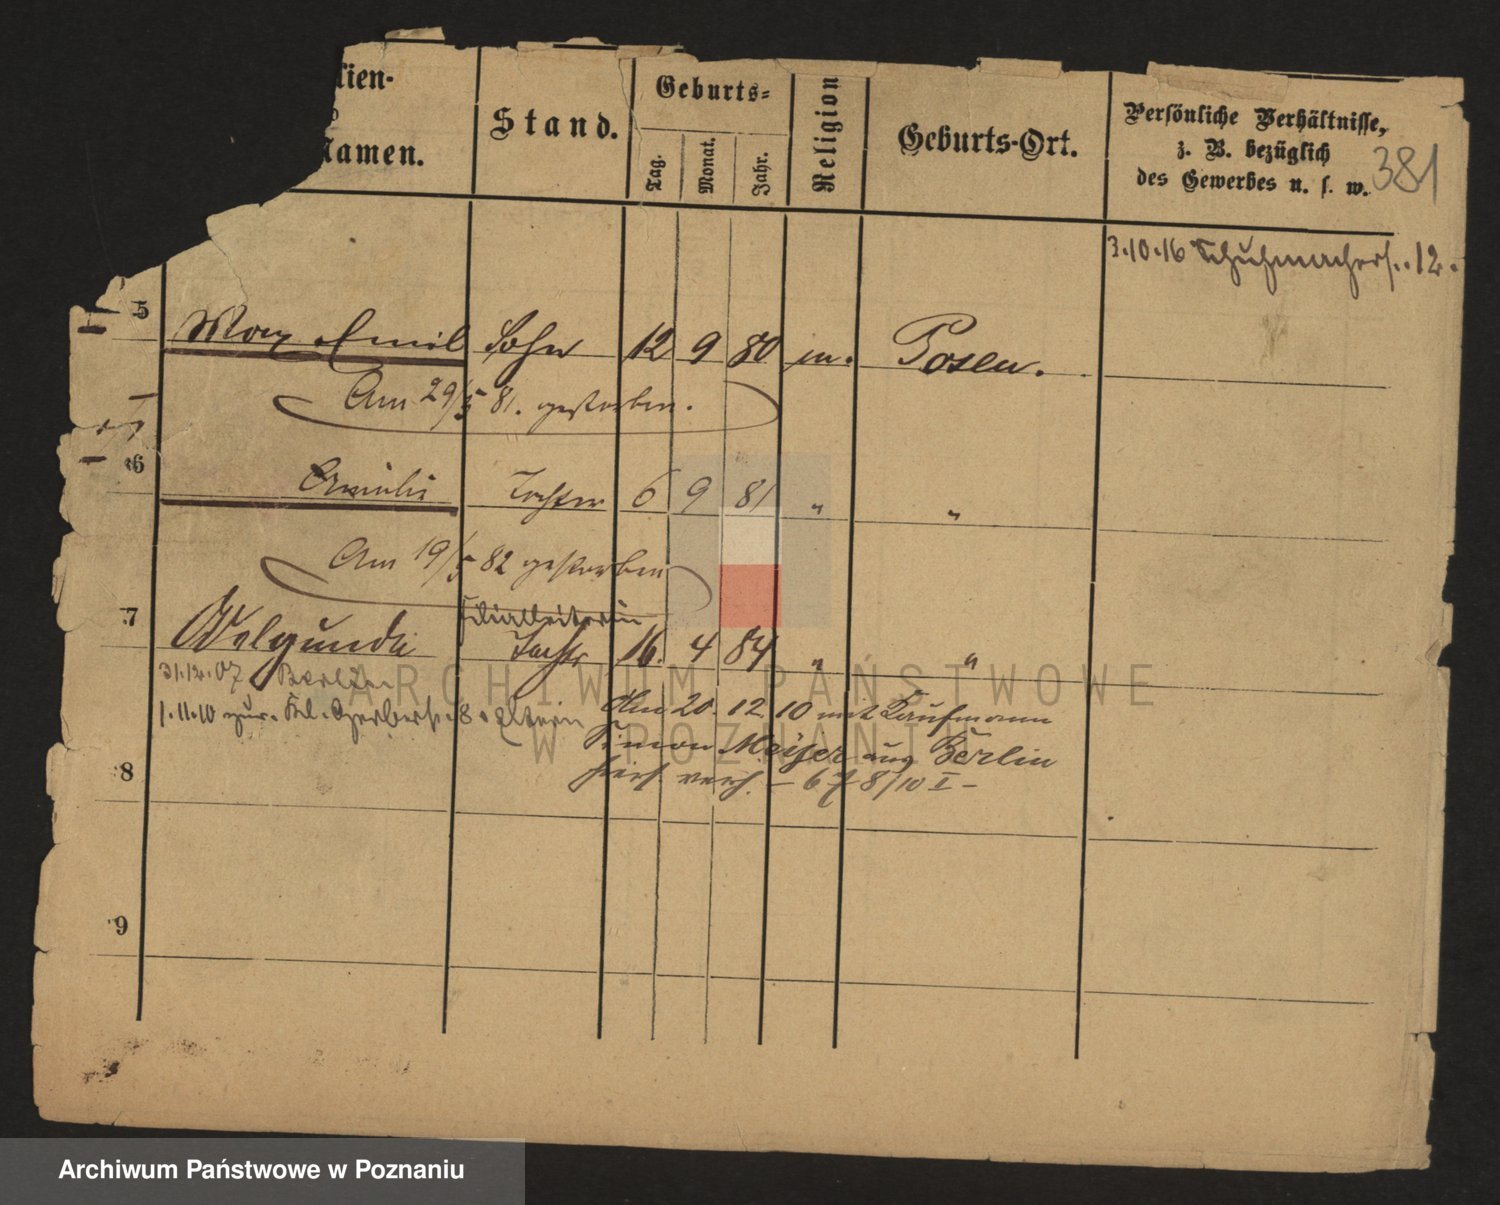 lien-
Namen.
Stand.
Geburts-
Tag.
Monat.
Jahr.
Religion
Geburts-Ort.
Persönliche Verhältnisse,
z. B. bezüglich
des Gewerbes u. s. w.
381
3.10.16 Schuhmacherst. 12.
5 Max Emil Sohn 12 9 80 m. Posen.
Am 29/5 81. gestorben.
6 Tochter 6 9 81 " "
Am 19/5 82 gestorben
Filialleiterin
7 Welgunde Tochter 16. 4 84 " "
31.12.07 Berlin
1.11.10 zur. Kl. Gerberst. 8. Eltern
Am 20. 12. 10 mit Kaufmann
Simon aus Berlin
hier verh. – 678/10 I –
8
9
ARCHIWUM PAŃSTWOWE
W POZNANIU
Archiwum Państwowe w Poznaniu